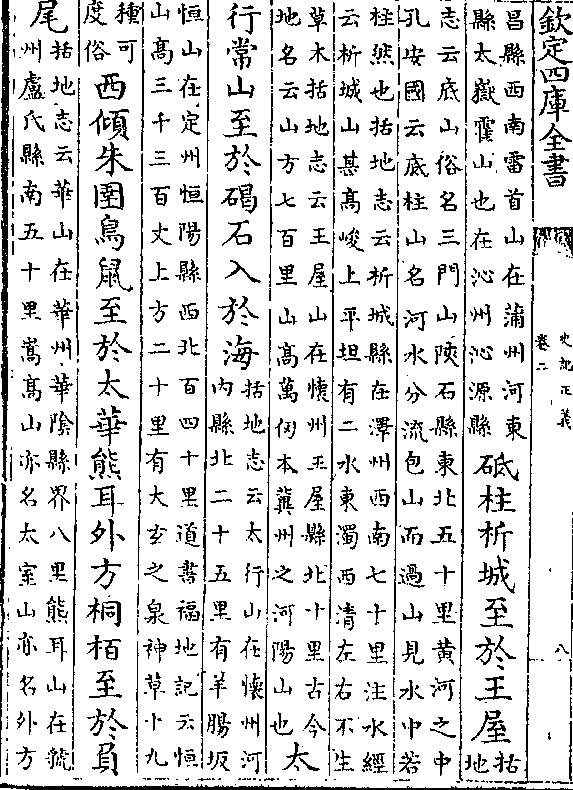 欽定四庫全書
史記正義
卷二
八
昌縣西南雷首山在蒲州河東
縣太嶽霍山也在沁州沁源縣
砥柱析城至於王屋
括
地
志云底山俗名三門山陝石縣東北五十里黃河之中
孔安國云底柱山名河水分流包山而過山見水中若
柱然也括地志云析城縣在澤州西南七十里注水經
云析城山甚高峻上平坦有二水東濁西清左右不生
草木括地志云王屋山在懷州王屋縣北十里古今
地名云山方七百里山高萬仞本冀州之河陽山也
太
行常山至於碣石入於海
括地志云太行山在懷州河
內縣北二十五里有羊腸坂
恒山在定州恒陽縣西北百四十里道書福地記云恒
山高三千三百丈上方二十里有大玄之泉神草十九
種可
度俗
西傾朱圉鳥鼠至於太華熊耳外方桐栢至於負
尾
括地志云華山在華州華陰縣界八里熊耳山在虢
州盧氏縣南五十里嵩高山亦名太室山亦名外方